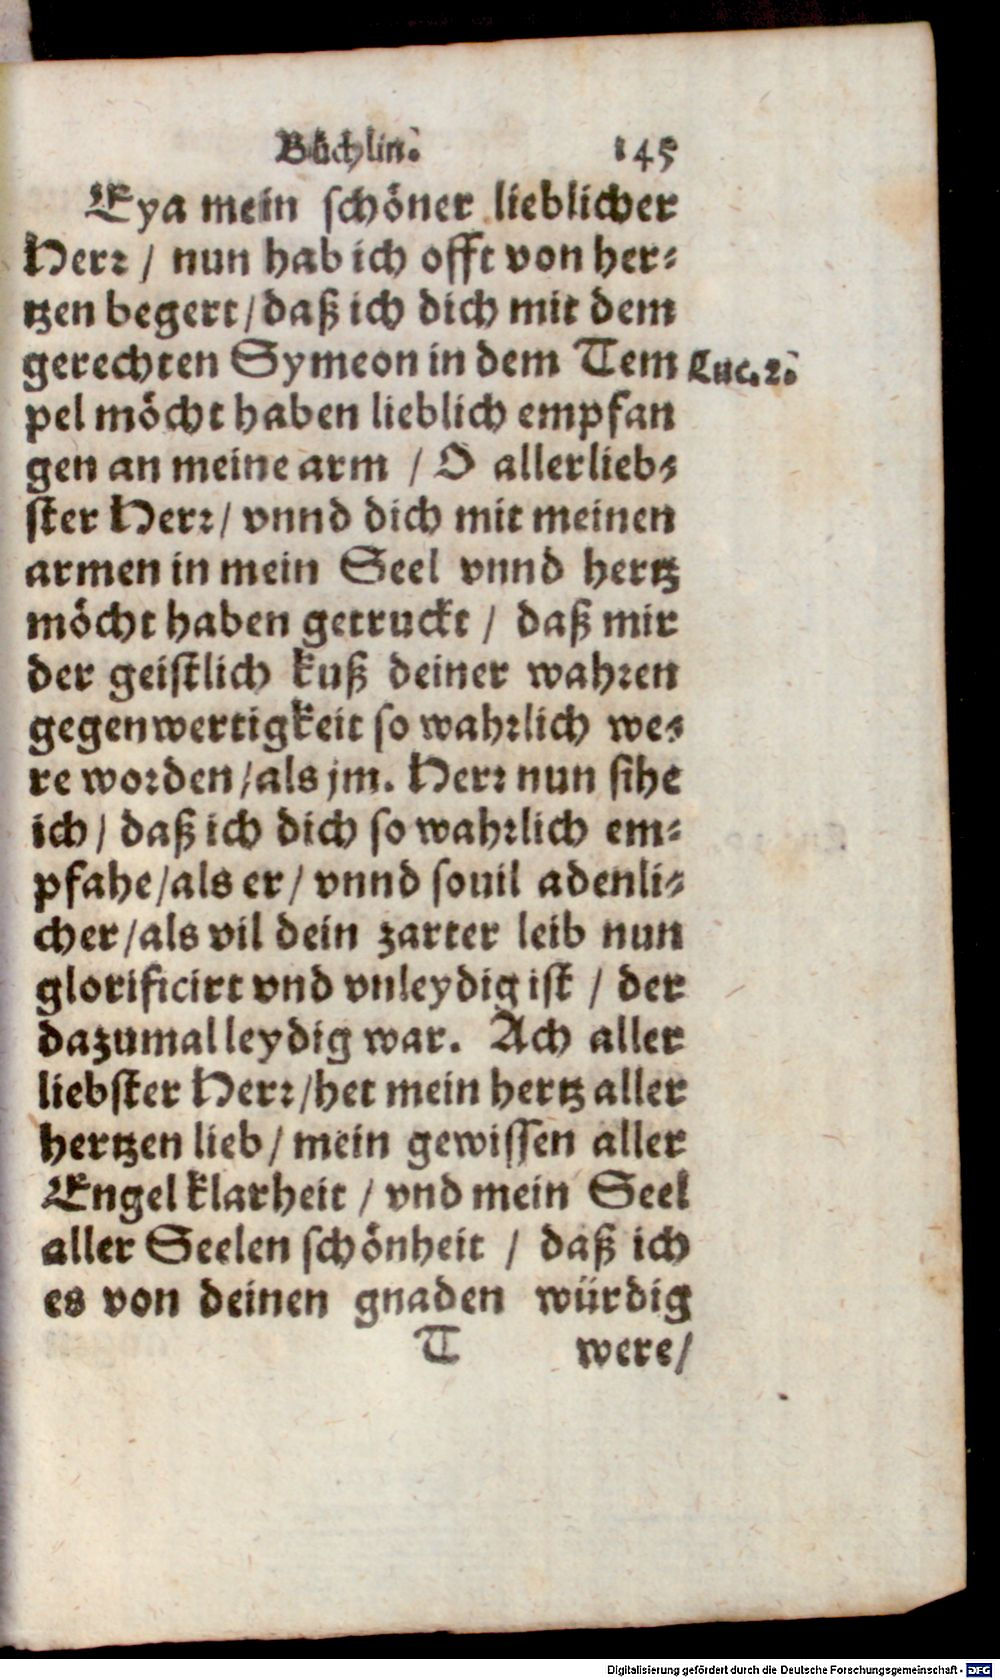 Bůchlin. 145
Eya mein schöner lieblicher
Herr / nun hab ich offt von her-
tzen begert / daß ich dich mit dem
gerechten Symeon in dem Tem Luc. 2.
pel möcht haben lieblich empfan
gen an meine arm / O allerlieb-
ster Herr / vnnd dich mit meinen
armen in mein Seel vnnd hertz
möcht haben getruckt / daß mir
der geistlich kuß deiner wahren
gegenwertigkeit so wahrlich we-
re worden / als jm. Herr nun sihe
ich / daß ich dich so wahrlich em-
pfahe / als er / vnnd souil adenli-
cher / als vil dein zarter leib nun
glorificirt vnd vnleydig ist / der
dazumal leydig war. Ach aller
liebster Herr / het mein hertz aller
hertzen lieb / mein gewissen aller
Engel klarheit / vnd mein Seel
aller Seelen schönheit / daß ich
es von deinen gnaden würdig
T were /
Digitalisierung gefördert durch die Deutsche Forschungsgemeinschaft - DFG